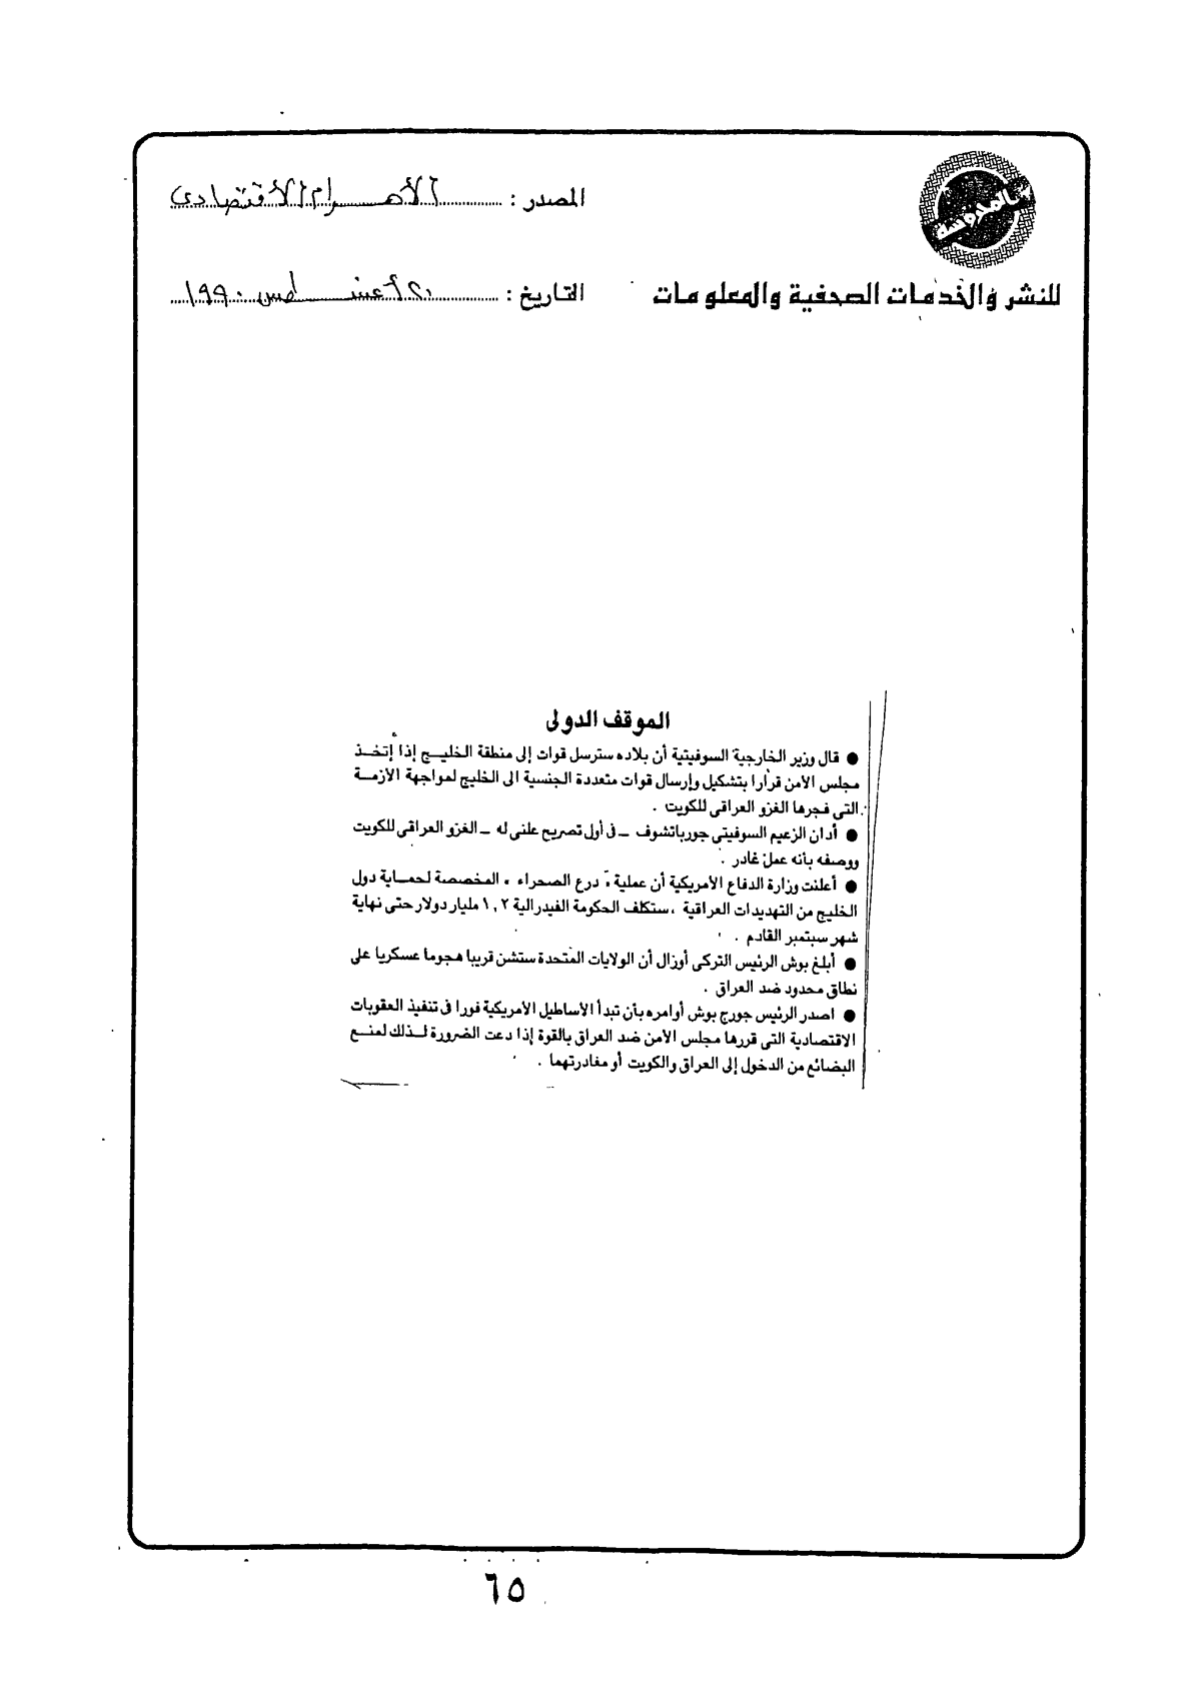 المحروسة
المصدر : الأهرام الاقتصادى
للنشر والخدمات الصحفية والمعلومات
التاريخ : ٢٠ أغسطس ١٩٩٠
الموقف الدولى
● قال وزير الخارجية السوفيتية أن بلاده سترسل قوات إلى منطقة الخليج إذا إتخذ
مجلس الأمن قرارا بتشكيل وإرسال قوات متعددة الجنسية الى الخليج لمواجهة الأزمة
التى فجرها الغزو العراقى للكويت .
● أدان الزعيم السوفيتى جورباتشوف ــ فى أول تصريح علنى له ــ الغزو العراقى للكويت
ووصفه بأنه عمل غادر .
● أعلنت وزارة الدفاع الأمريكية أن عملية « درع الصحراء » المخصصة لحماية دول
الخليج من التهديدات العراقية ، ستكلف الحكومة الفيدرالية ١,٢ مليار دولار حتى نهاية
شهر سبتمبر القادم .
● أبلغ بوش الرئيس التركى أوزال أن الولايات المتحدة ستشن قريبا هجوما عسكريا على
نطاق محدود ضد العراق .
● اصدر الرئيس جورج بوش أوامره بأن تبدأ الأساطيل الأمريكية فورا فى تنفيذ العقوبات
الاقتصادية التى قررها مجلس الأمن ضد العراق بالقوة إذا دعت الضرورة لذلك لمنع
البضائع من الدخول إلى العراق والكويت أو مغادرتهما .
٦٥